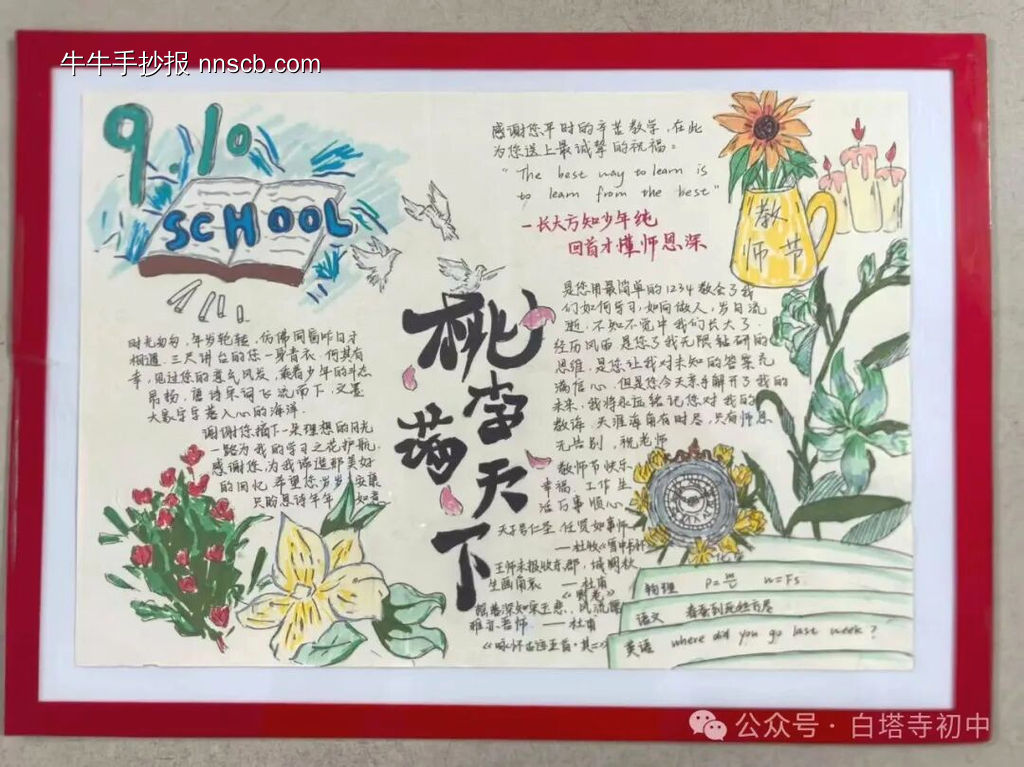 牛牛手抄报 nnscb.com
9.10
SCHOOL
感谢您平时的辛苦教学，在此
为您送上最诚挚的祝福。
"The best way to learn is
to learn from the best"
一长大方知少年纯
回首才懂师恩深
教
师节
桃李满天下
时光匆匆，年岁轮转，仿佛同窗昨日才
相逢，三尺讲台的您一身青衣，何其有
幸，见过您的意气风发，乘着少年的斗志
昂扬，唐诗宋词飞流而下，文墨
大家字字落入心的海洋。
谢谢您摘下一朵理想的月光
一路为我的学习之花护航，
感谢您，为我缔造那美好
的回忆 希望您岁岁 安康
只盼恩诗年年 如意
是您用最简单的1234教会了我
们如何学习，如何做人，岁月流
逝，不知不觉中我们长大了，
经历风雨 是您了我无限钻研的
思维，是您让我对未知的答案充
满信心，但是您今天亲手解开了我的
未来，我将永远铭记您对我的
教诲，天涯海角有时尽，只有师恩
无告别，祝老师
教师节快乐
幸福，工作 生
活万事顺心
天子号仁圣，任贤如事师
——杜牧《雪中书怀
王师未报收东郡，城阙秋
生画角哀 ——杜甫
《野老》
摇落深知宋玉悲，风流儒
雅亦吾师 ——杜甫
《咏怀古迹五首·其二》
物理 ρ=m/v W=Fs
语文 春蚕到死丝方尽
英语 where did you go last week?
公众号·白塔寺初中